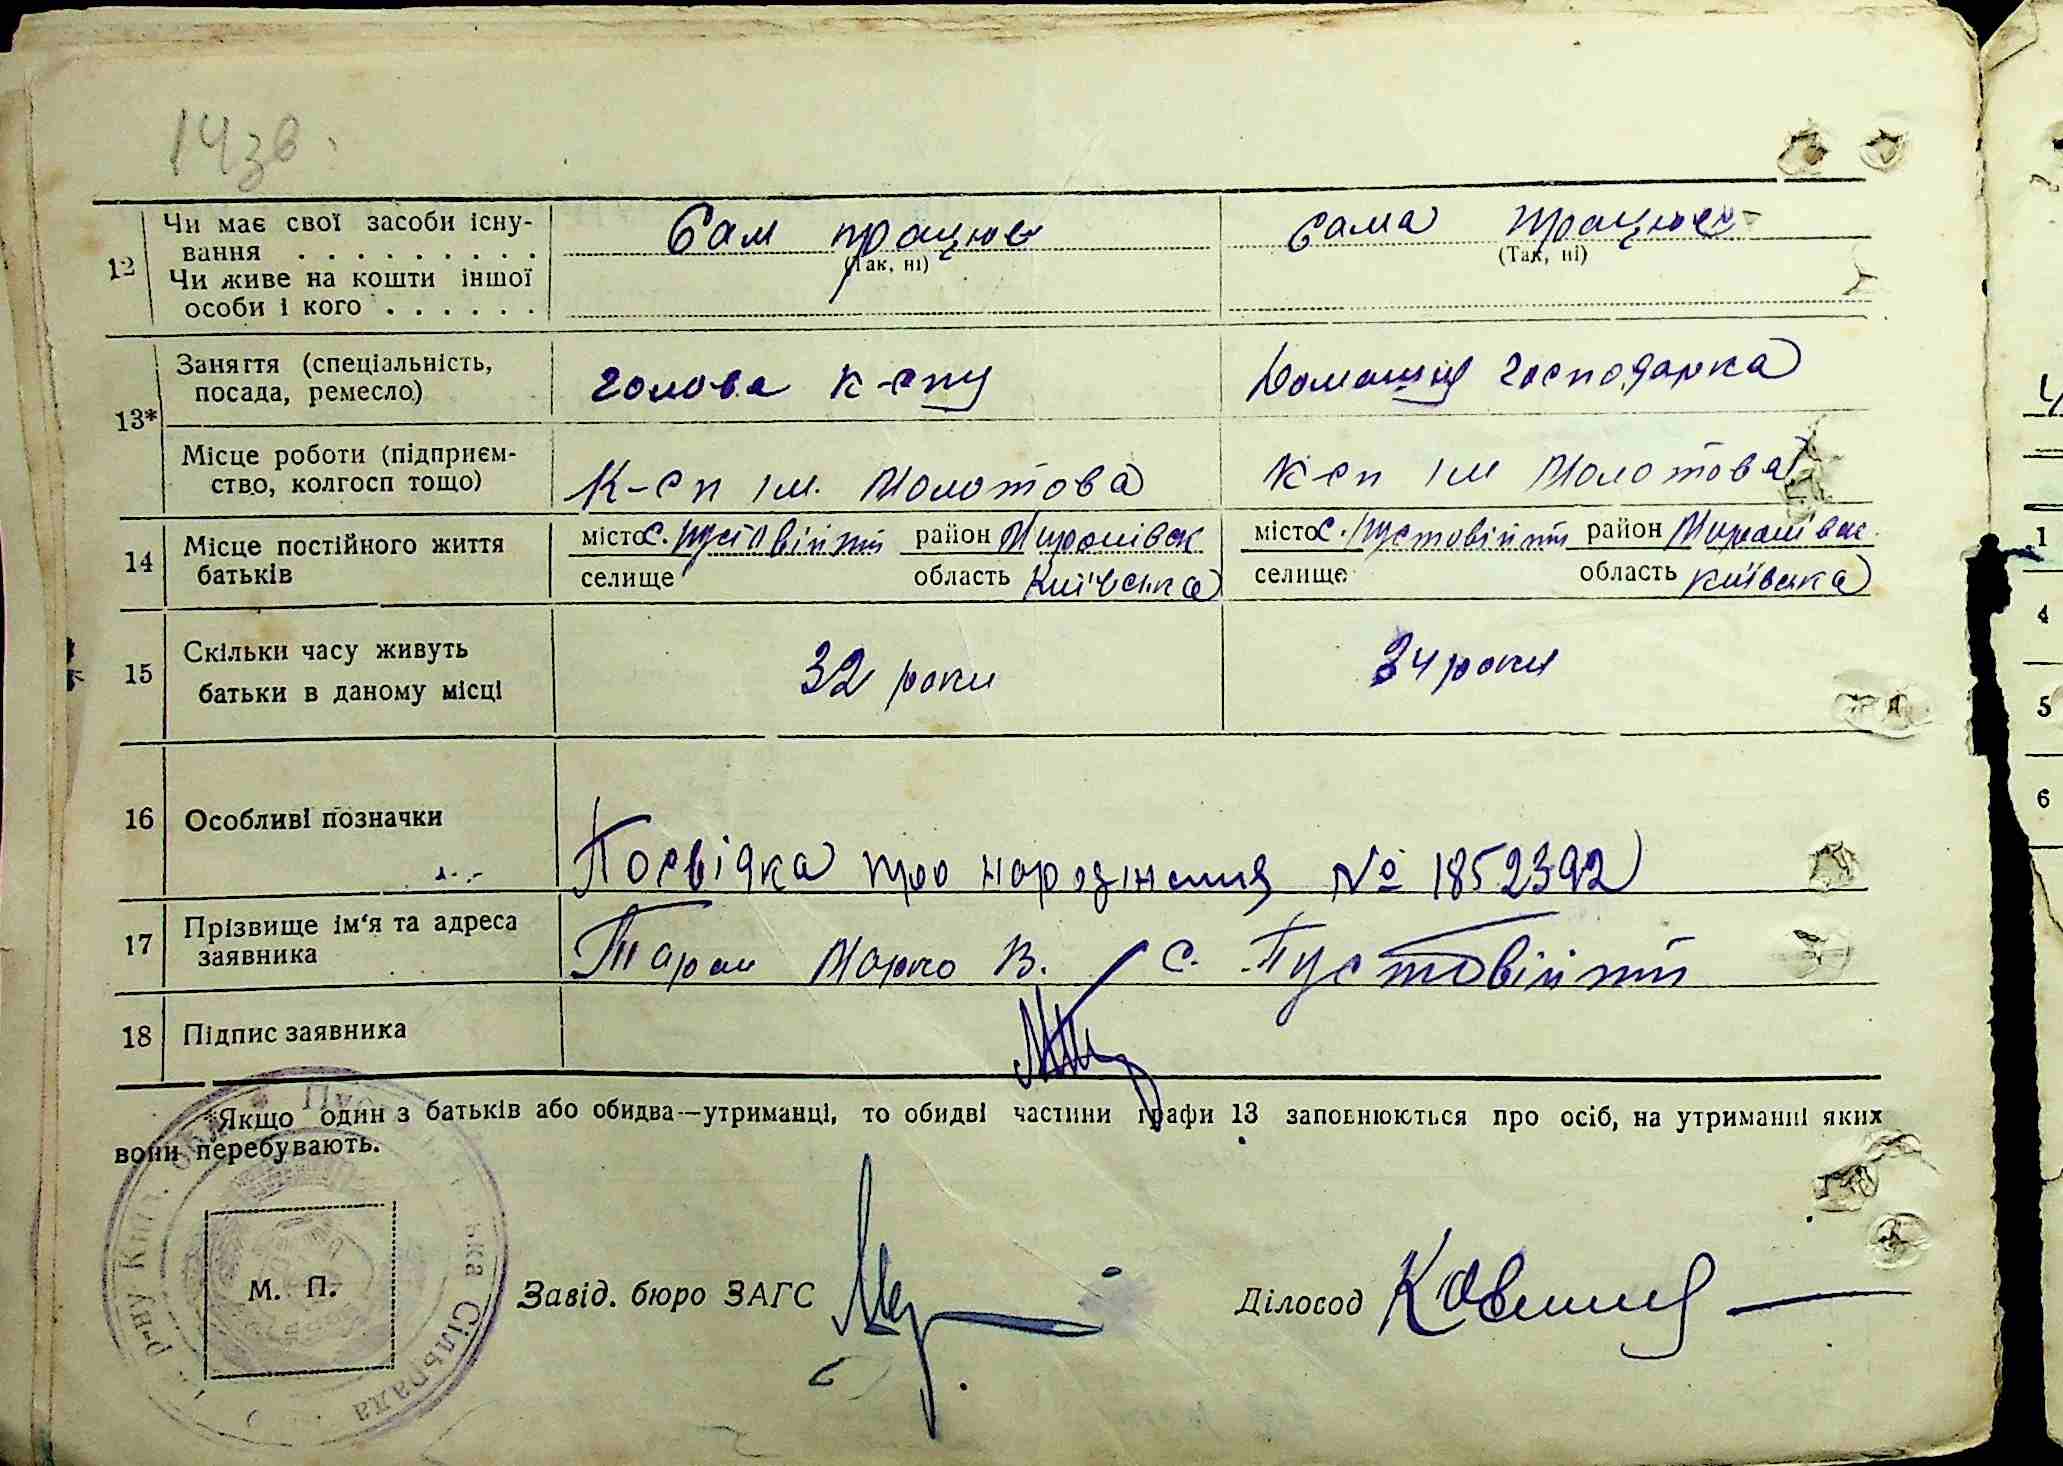 14зв.
12 Чи має свої засоби існу-
вання . . . . . . . . . . Сам працює сама працює
(Так, ні) (Так, ні)
Чи живе на кошти іншої
особи і кого . . . . . .
13* Заняття (спеціальність,
посада, ремесло) голова к-спу Домашня господарка
Місце роботи (підприєм-
ство, колгосп тощо) К-сп ім. Молотова К-сп ім Молотова
14 Місце постійного життя
батьків
місто с. Пустовійти район Миронівськ місто с. Пустовійти район Миронівськ
селище область Київська селище область Київська
15 Скільки часу живуть
батьки в даному місці 32 роки 34 роки
16 Особливі позначки Посвідка про народження № 1852392
17 Прізвище ім'я та адреса
заявника Таран Марко В. с. Пустовійти
18 Підпис заявника
*Якщо один з батьків або обидва—утриманці, то обидві частини графи 13 заповнюються про осіб, на утриманні яких
вони перебувають.
М. П. Завід. бюро ЗАГС Діловод
Сільрада
1
4
5
6